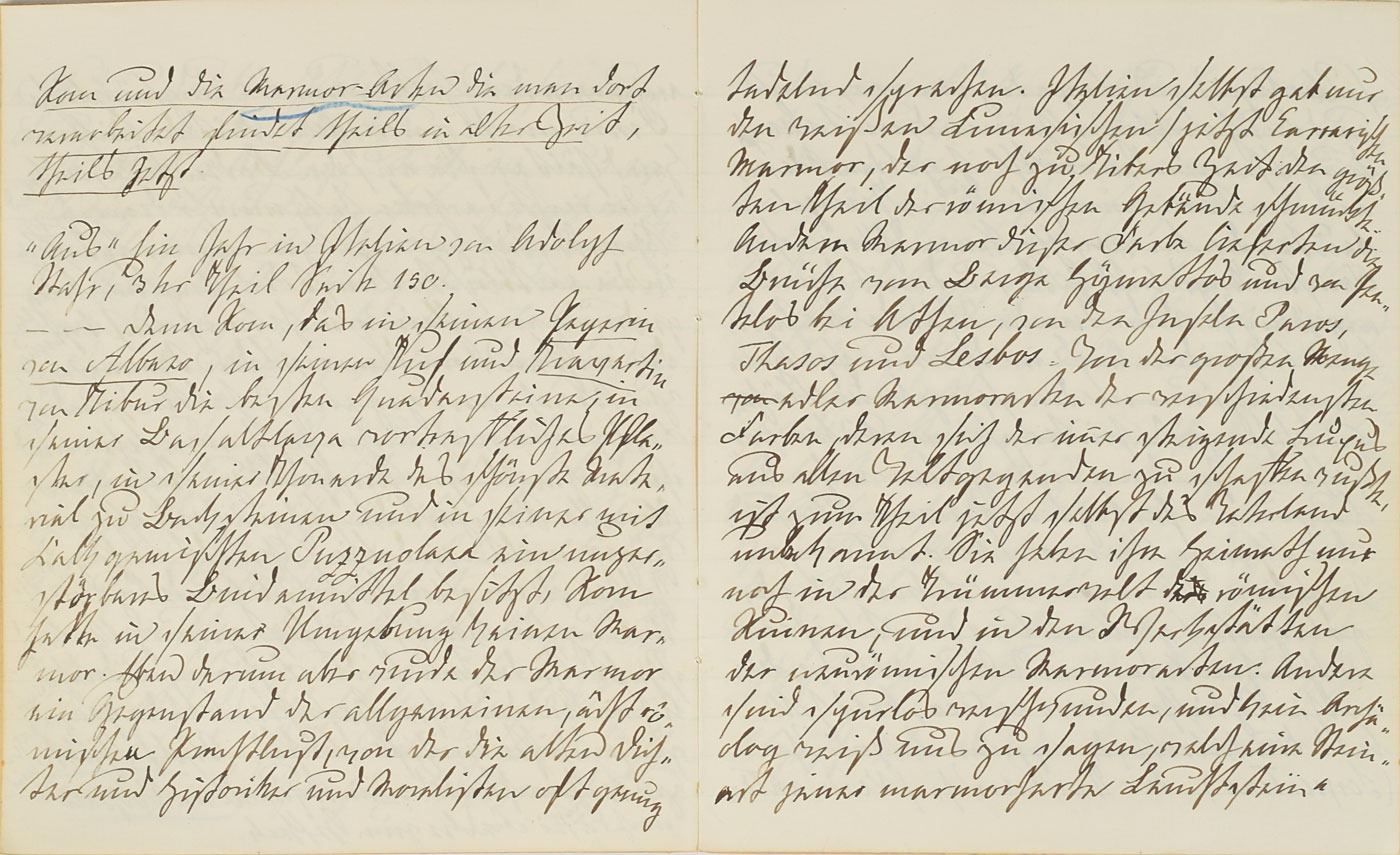 Rom und die Marmor Arten die man dort
verarbeitet findet theils in alter Zeit,
theils jetzt.
"Aus" Ein Jahr in Italien von Adolph
Stahr, 3ter Theil Seite 150.
— — Denn Rom, das in seinem Peperin
von Albano, in seinem Tuf und Travertin
von Tibur die besten Quadersteine, in
seiner Basaltlava vortreffliches Pfla-
ster, in seiner Thonerde das schönste Mate-
rial zu Backsteinen und in seiner mit
Kalk gemischten Puzzuolana ein unzer-
störbares Bindemittel besitzt, Rom
hatte in seiner Umgebung keinen Mar-
mor. Eben darum aber wurde der Marmor
ein Gegenstand der allgemeinen, ächt rö-
mischen Prachtlust, von der die alten Dich-
ter und Historiker und Moralisten oft genug
tadelnd sprachen. Italien selbst gab nur
den weißen Lunesischen (jetzt Cararischen
Marmor, der noch zu Tibers Zeit den größ-
ten Theil der römischen Gebäude schmückte.
Andern Marmor dieser Farbe lieferten die
Brüche vom Berge Hymettos und von Pen-
telos bei Athen, von den Inseln Paros,
Thasos und Lesbos. Von der großen Menge
von edler Marmorarten der verschiedensten
Farben, deren sich der imer steigende Luxus
aus allen Weltgegenden zu schaffen wußte,
ist zum Theil jetzt selbst das Vaterland
unbekannt. Sie haben ihre Heimath nur
noch in der Trümmerwelt der römischen
Ruinen, und in den Werkstätten
der neurömischen Marmorarten. Andere
sind spurlos verschwunden, und kein Archä-
olog weiß uns zu sagen, welch eine Stein-
art jener marmorharte Leuchtstein"